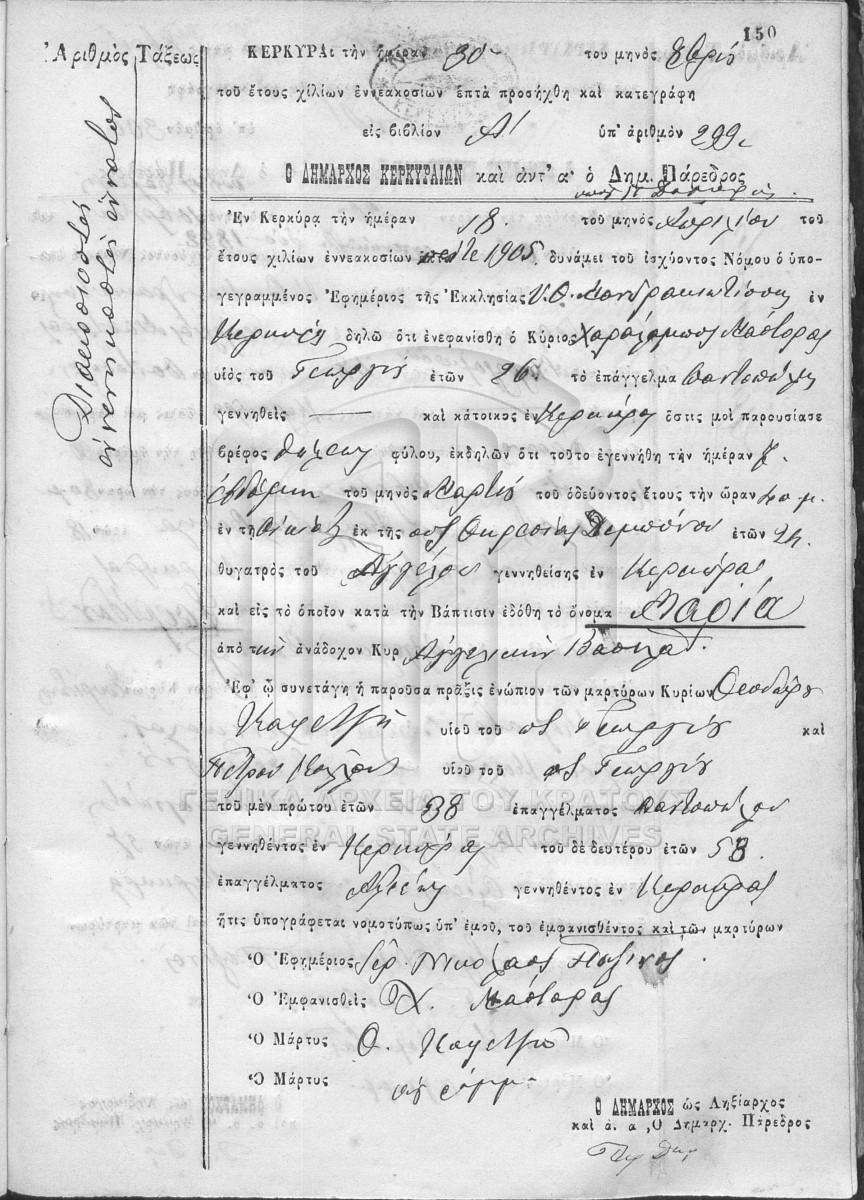 150
Ἀριθμὸς Τάξεως
Διακοσιοστός
ἐννενηκοστός ἔννατος
ΚΕΡΚΥΡΑι τὴν ἡμέραν 30 τοῦ μηνὸς 8βρίου
τοῦ ἔτους χίλιων ἐννεακοσίων ἑπτὰ προσήχθη καὶ κατεγράφη
εἰς βιβλίον Α' ὑπ' ἀριθμὸν 299
Ο ΔΗΜΑΡΧΟΣ ΚΕΡΚΥΡΑΙΩΝ καὶ ἀντ' α' ὁ Δημ. Πάρεδρος
Ἐν Κερκύρᾳ τὴν ἡμέραν 18 τοῦ μηνὸς Ἀπριλίου τοῦ
ἔτους χίλιων ἐννεακοσίων πέντε 1905 δυνάμει τοῦ ἰσχύοντος Νόμου ὁ ὑπο-
γεγραμμένος Ἐφημέριος τῆς Ἐκκλησίας Υ.Θ. Μανδρακιωτίσσης ἐν
Κερκύρᾳ δηλῶ ὅτι ἐνεφανίσθη ὁ Κύριος Χαράλαμπος Μάστορας
υἱὸς τοῦ Γεωργίου ἐτῶν 26 τὸ ἐπάγγελμα παντοπώλης
γεννηθεὶς καὶ κάτοικος ἐν Κερκύρᾳ ὅστις μοὶ παρουσίασε
βρέφος θήλεως φύλου, ἐκδηλῶν ὅτι τοῦτο ἐγεννήθη τὴν ἡμέραν 7
ἑβδόμην τοῦ μηνὸς Μαρτίου τοῦ ὁδεύοντος ἔτους τὴν ὥραν μ.
ἐν τῇ οἰκίᾳ ἐκ τῆς συζ ἐτῶν
θυγατρὸς τοῦ Ἀγγέλου γεννηθείσης ἐν Κερκύρᾳ
καὶ εἰς τὸ ὁποῖον κατὰ τὴν Βάπτισιν ἐδόθη τὸ ὄνομα Μαρία
ἀπὸ τὴν ἀνάδοχον Κυρ Ἀγγελικὴν
Ἐφ' ᾧ συνετάγη ἡ παροῦσα πρᾶξις ἐνώπιον τῶν μαρτύρων Κυρίων Θεοδώρου
Καφετζῆ υἱοῦ τοῦ ποτ Γεωργίου καὶ
Πέτρου υἱοῦ τοῦ ποτ Γεωργίου
τοῦ μὲν πρώτου ἐτῶν 38 ἐπαγγέλματος παντοπώλου
γεννηθέντος ἐν Κερκύρᾳ τοῦ δὲ δευτέρου ἐτῶν 58
ἐπαγγέλματος γεννηθέντος ἐν Κερκύρᾳ
ἥτις ὑπογράφεται νομοτύπως ὑπ' ἐμοῦ, τοῦ ἐμφανισθέντος καὶ τῶν μαρτύρων
Ὁ Ἐφημέριος Ἱερ. Νικόλαος
Ὁ Ἐμφανισθεὶς Χ. Μάστορας
Ὁ Μάρτυς Θ. Καφετζῆς
Ὁ Μάρτυς
Ο ΔΗΜΑΡΧΟΣ ὡς Ληξίαρχος
καὶ ἀ. α, Ὁ Δημαρχ. Πάρεδρος
ΓΕΝΙΚΑ ΑΡΧΕΙΑ ΤΟΥ ΚΡΑΤΟΥΣ
GENERAL STATE ARCHIVES